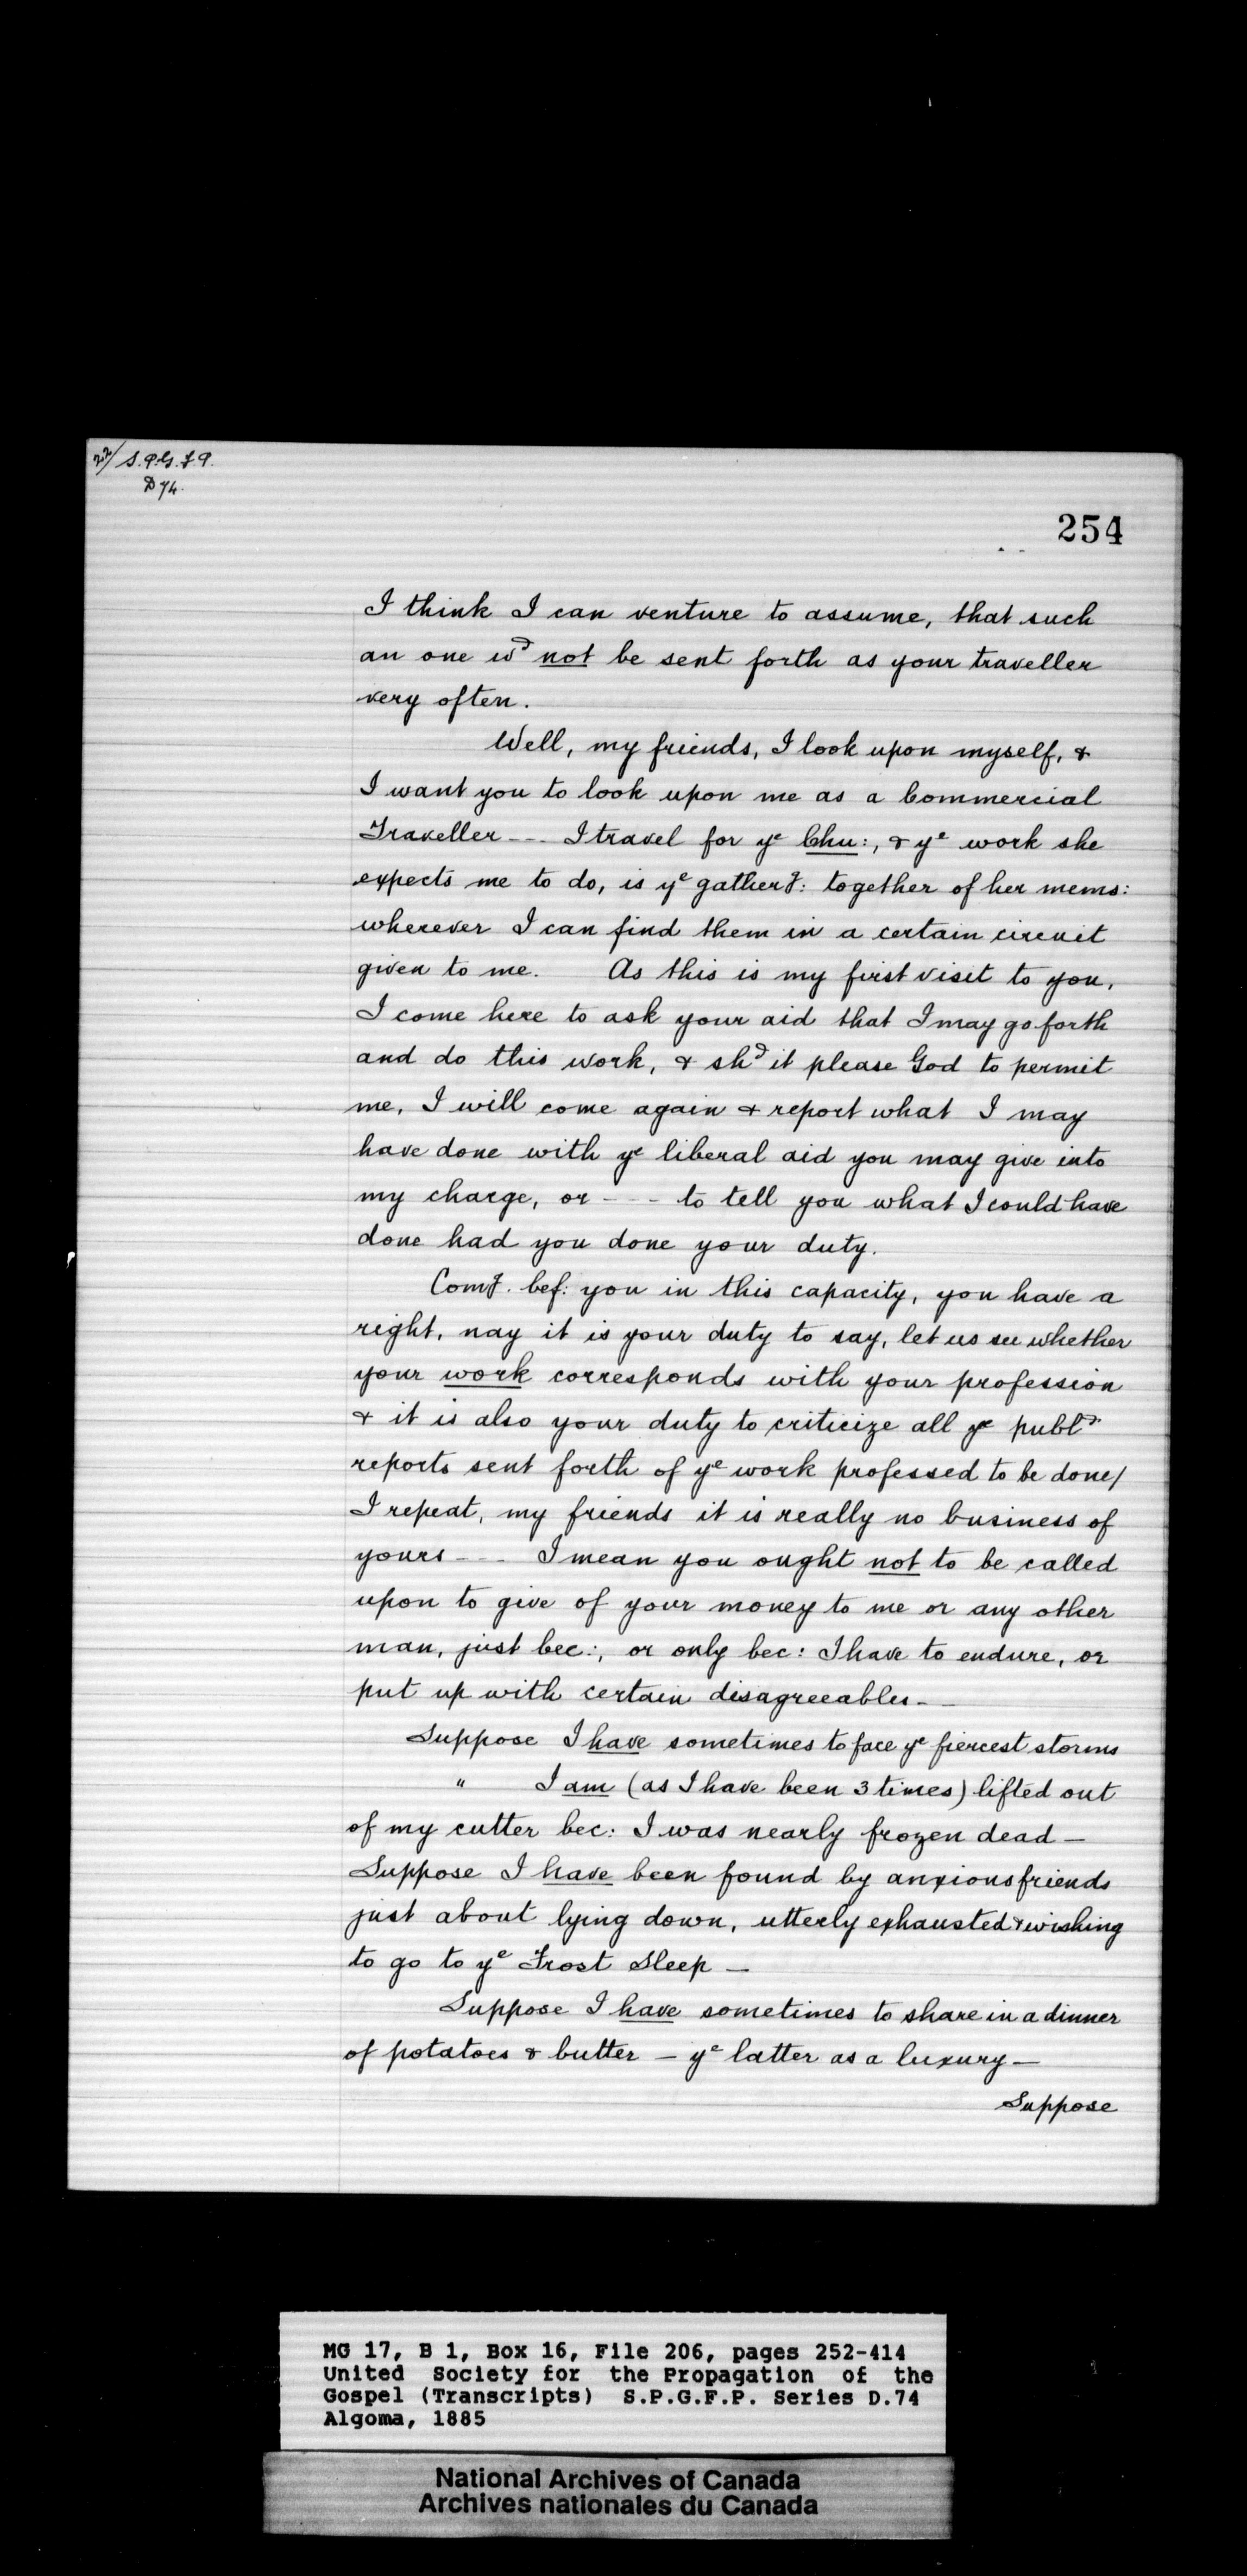 22/ S.P.G.F.P.
D 74.
254
I think I can venture to assume, that such
an one wd not be sent forth as your traveller
very often.
Well, my friends, I look upon myself, &
I want you to look upon me as a Commercial
Traveller --- I travel for ye Chu:, & ye work she
expects me to do, is ye gatherg: together of her mems:
wherever I can find them in a certain circuit
given to me. As this is my first visit to you,
I come here to ask your aid that I may go forth
and do this work, & shd it please God to permit
me, I will come again & report what I may
have done with ye liberal aid you may give into
my charge, or --- to tell you what I could have
done had you done your duty.
Comg. bef: you in this capacity, you have a
right, nay it is your duty to say, let us see whether
your work corresponds with your profession
& it is also your duty to criticize all ye publd
reports sent forth of ye work professed to be done/
I repeat, my friends it is really no business of
yours --- I mean you ought not to be called
upon to give of your money to me or any other
man, just bec:, or only bec: I have to endure, or
put up with certain disagreeables--
Suppose I have sometimes to face ye fiercest storms
" I am (as I have been 3 times) lifted out
of my cutter bec: I was nearly frozen dead -
Suppose I have been found by anxious friends
just about lying down, utterly exhausted & wishing
to go to ye Frost Sleep -
Suppose I have sometimes to share in a dinner
of potatoes & butter - ye latter as a luxury -
Suppose
MG 17, B 1, Box 16, File 206, pages 252-414
United Society for the Propagation of the
Gospel (Transcripts) S.P.G.F.P. Series D.74
Algoma, 1885
National Archives of Canada
Archives nationales du Canada